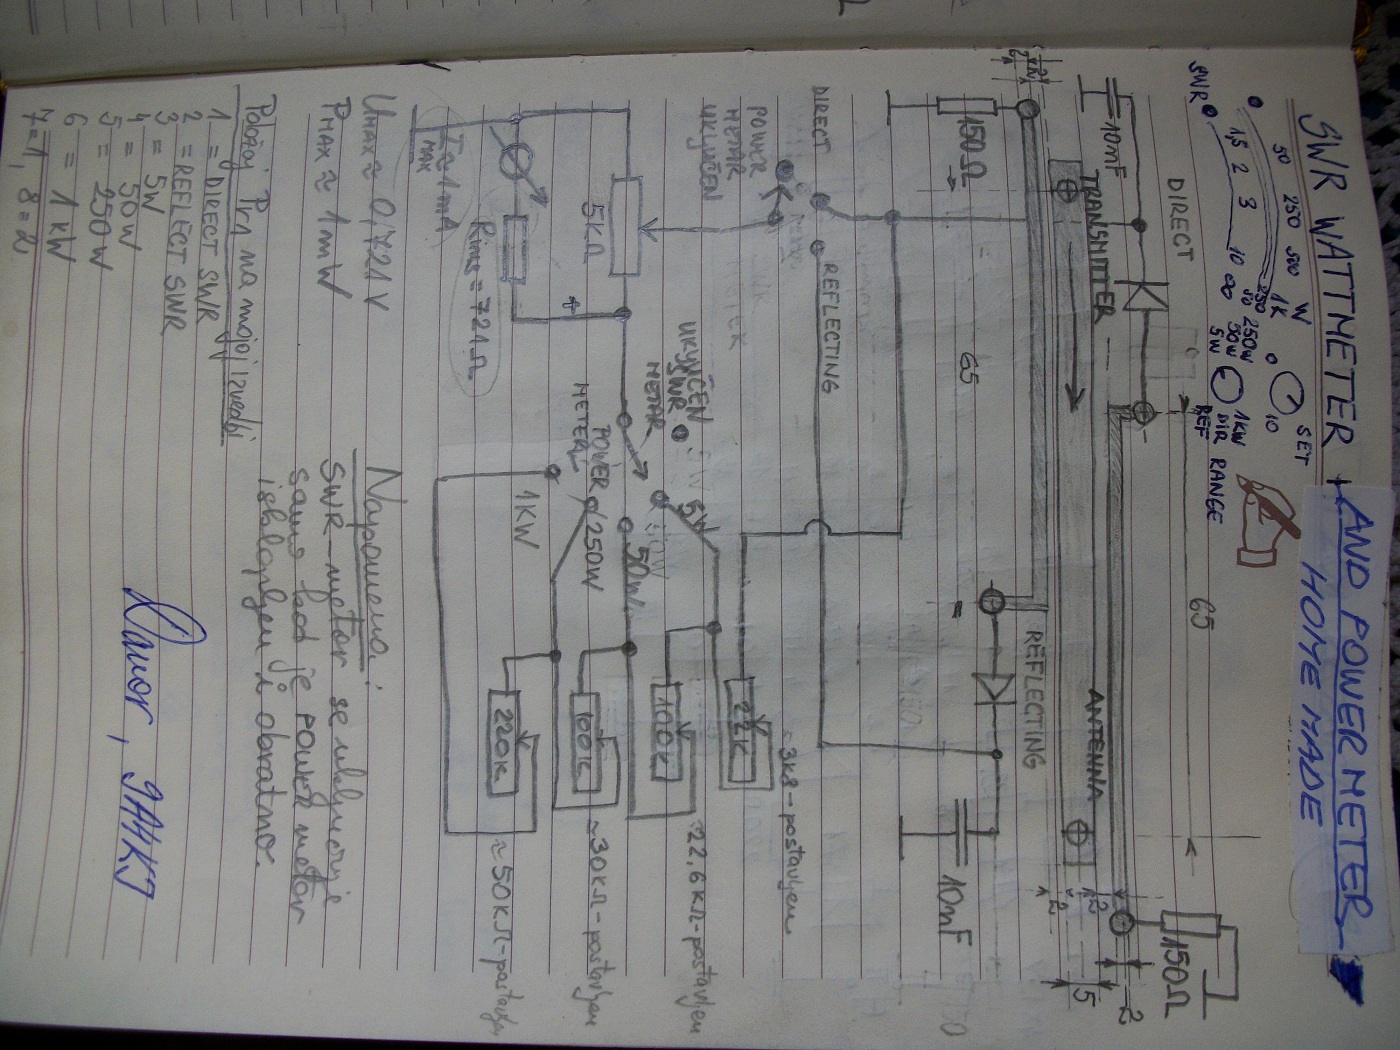 SWR WATTMETER AND POWER METER
HOME MADE
50 250 500 W
1K
SET
0 10
1,5 2 3 10 ∞
SWR
250
50
5W
250W
50W
1KW
DIR
REF
RANGE
DIRECT
65
10mF
TRANSMITTER
ANTENNA
150Ω
150Ω
2
5
2
2
2
65
REFLECTING
10mF
DIRECT
REFLECTING
POWER
METAR
UKLJUČEN
UKLJUČEN
SWR
METAR
5W
50W
250W
1KW
POWER
METER
5KΩ
22K
~3K8-postavljen
100K
~22,6KΩ-postavljen
100K
~30KΩ-postavljen
220K
~50KΩ-postavljen
Rims=721Ω
I≈1mA
MAX
UMAX≈0,721V
PMAX≈1mW
Položaj Pr1 na mojoj izvedbi
1=DIRECT SWR
2=REFLECT SWR
3=5W
4=50W
5=250W
6=1KW
7=1, 8=2
Napomena:
SWR-metar se uključuje
samo kad je power metar
isključen i obratno.
Damor, 9A4KJ